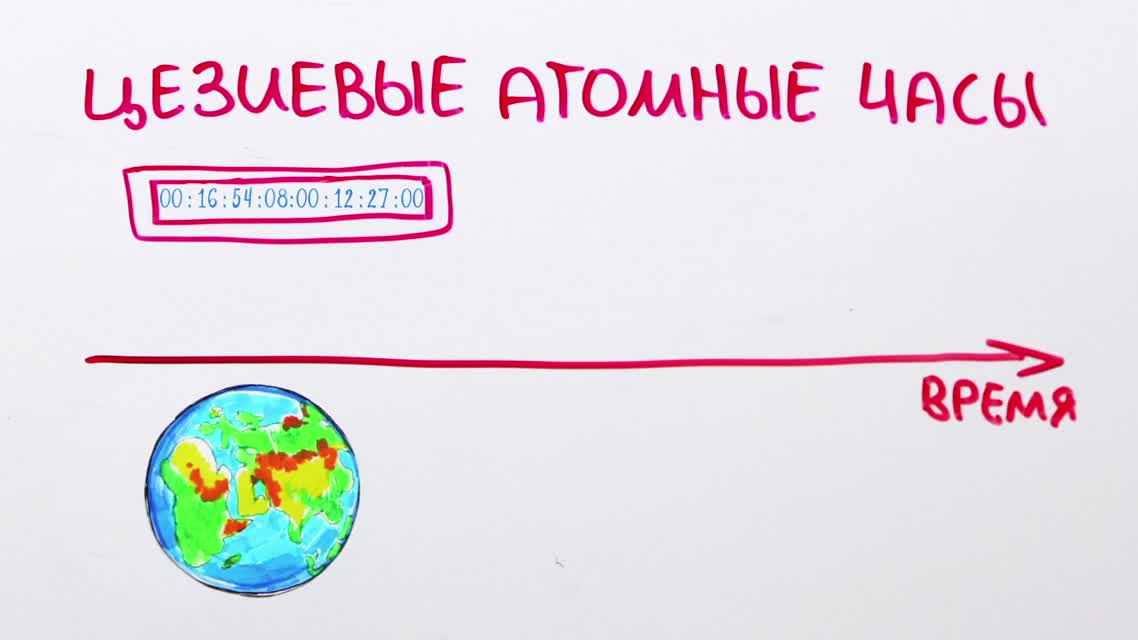 ЦЕЗИЕВЫЕ АТОМНЫЕ ЧАСЫ
00:16:54:08:00:12:27:00
ВРЕМЯ